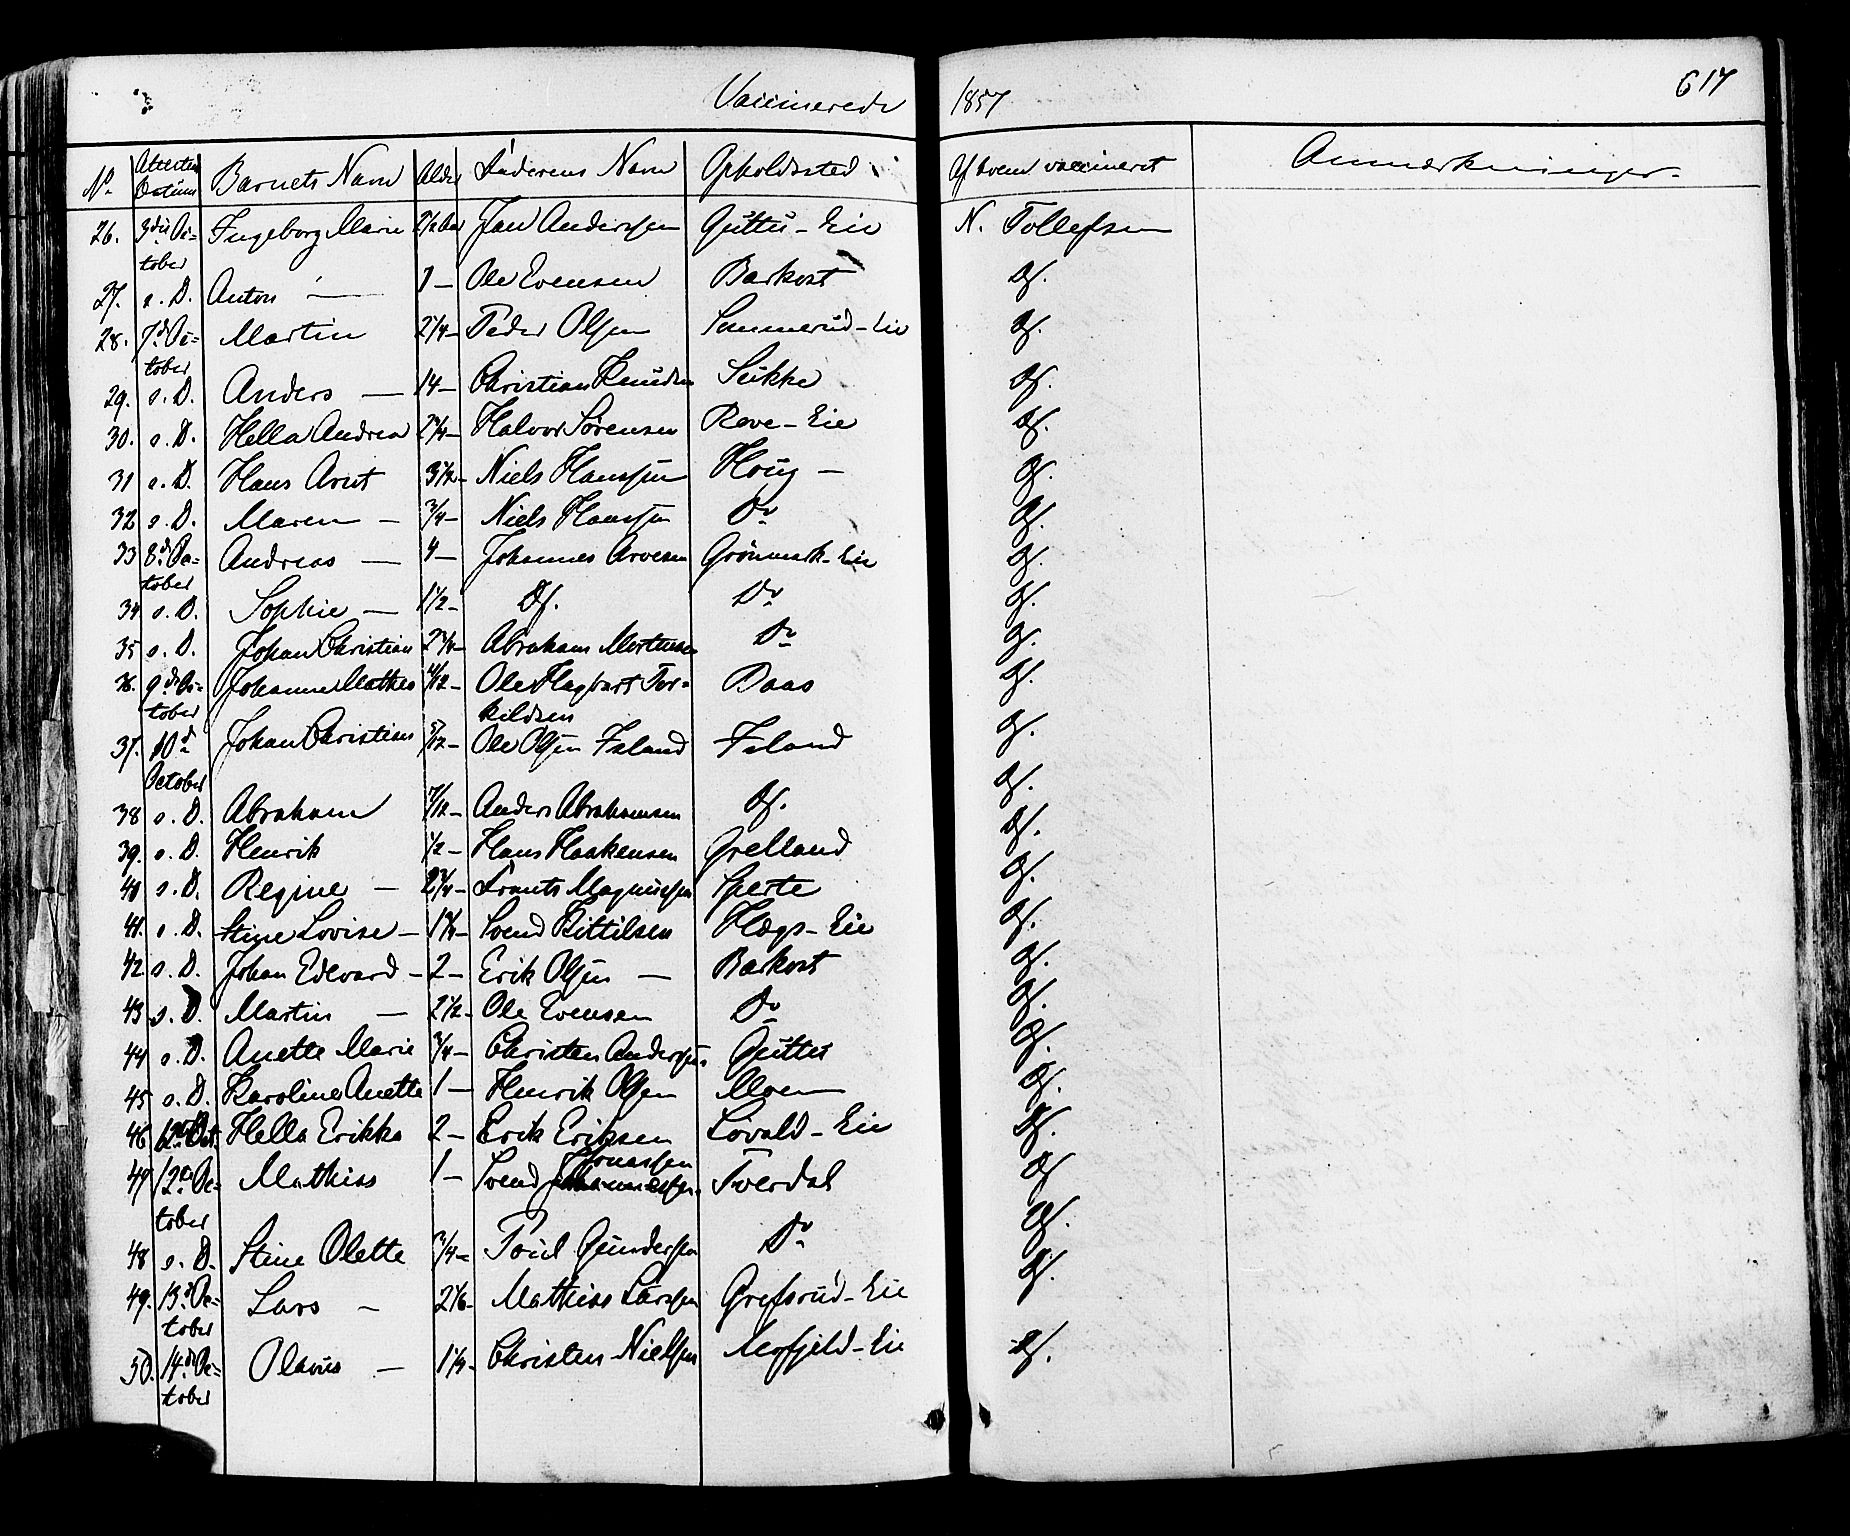 Vaccinerede 1857 617
No Attestens Datum Barnets Navn Alder Faderens Navn Opholdssted Af hvem vaccineret Anmærkninger
26. 3die Oc= Ingeborg Marie 2 1/2 Aar Jan Anderssen Guttu - Eie N. Tollefsen
tober
27. s. D. Anton — 1 — Ole Evensen Barkost Df.
28. 7d Oc= Martin 2 1/4 — Peder Olsen Sommerud - Eie Df.
tober
29. s. D. Anders — 14 — Christian Knudsen Sukke Df.
30. s. D. Hella Andrea 2 3/4 — Halvor Sørensen Rove - Eie Df.
31 s. D. Hans Arnt 3 1/2 — Niels Hanssen Houg — Df.
32 s. D. Maren — 3/4 — Niels Hanssen Do Df.
33 8d Oc= Andreas — 4 — Johannes Arvesen Grönmark - Eie Df.
tober
34 s. D. Sophie — 1 1/2 — Df. Do Df.
35 s. D. Johan Christian 2 3/4 — Abraham Mortensen Do Df.
36. 9d Oc= Johanne Mathea /12 — Ole Hagbart Tor= Baas Df.
tober kildsen
37. 10d Johan Christian 5/12 — Ole Olsen Faland Faland Df.
October
38 s. D. Abraham 7/12 — Anders Abrahamsen Df. Df.
39. s. D. Henrik 1/2 — Hans Haakensen Grelland Df.
40 s. D. Regine — 2 3/4 — Frants Magnussen Sperte Df.
41. s. D. Stine Lovise — 1 3/4 — Svend Kittilsen Hægs - Eie Df.
42 s. D. Johan Edevard — 2 — Erik Olsen — Barkost Df.
43 s. D. Martin — 2 1/2 — Ole Evensen Do Df.
44 s. D. Anette Marie 3/4 — Christen Anderssen Guttu Df.
45 s. D. Karoline Anette 1 — Henrik Olsen Moen Df.
46 12d Oct. Hella Erikka 2 — Erik Eriksen Lövald - Eie Df.
Jonassen
47 12d Oc= Mathias 1 — Svend Tverdal Df.
tober
48 s. D. Stine Olette 3/4 — Poul Gunderssen Do Df.
49. 13d Oc= Lars — 2 1/6 — Mathias Larssen Grefsrud - Eie Df.
tober
50. 14d Oc= Olaus — 1 1/4 — Christen Nielsen Merfjeld - Eie Df.
tober